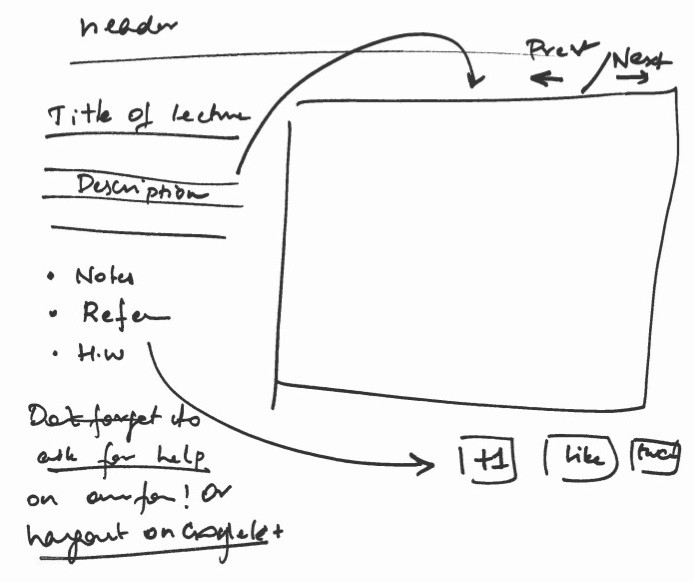 header
Prev / Next
Title of lecture
Description
• Notes
• Refer
• H.W
Dot forget to
ask for help
on ! Or
hangout on Google +
+1
Like